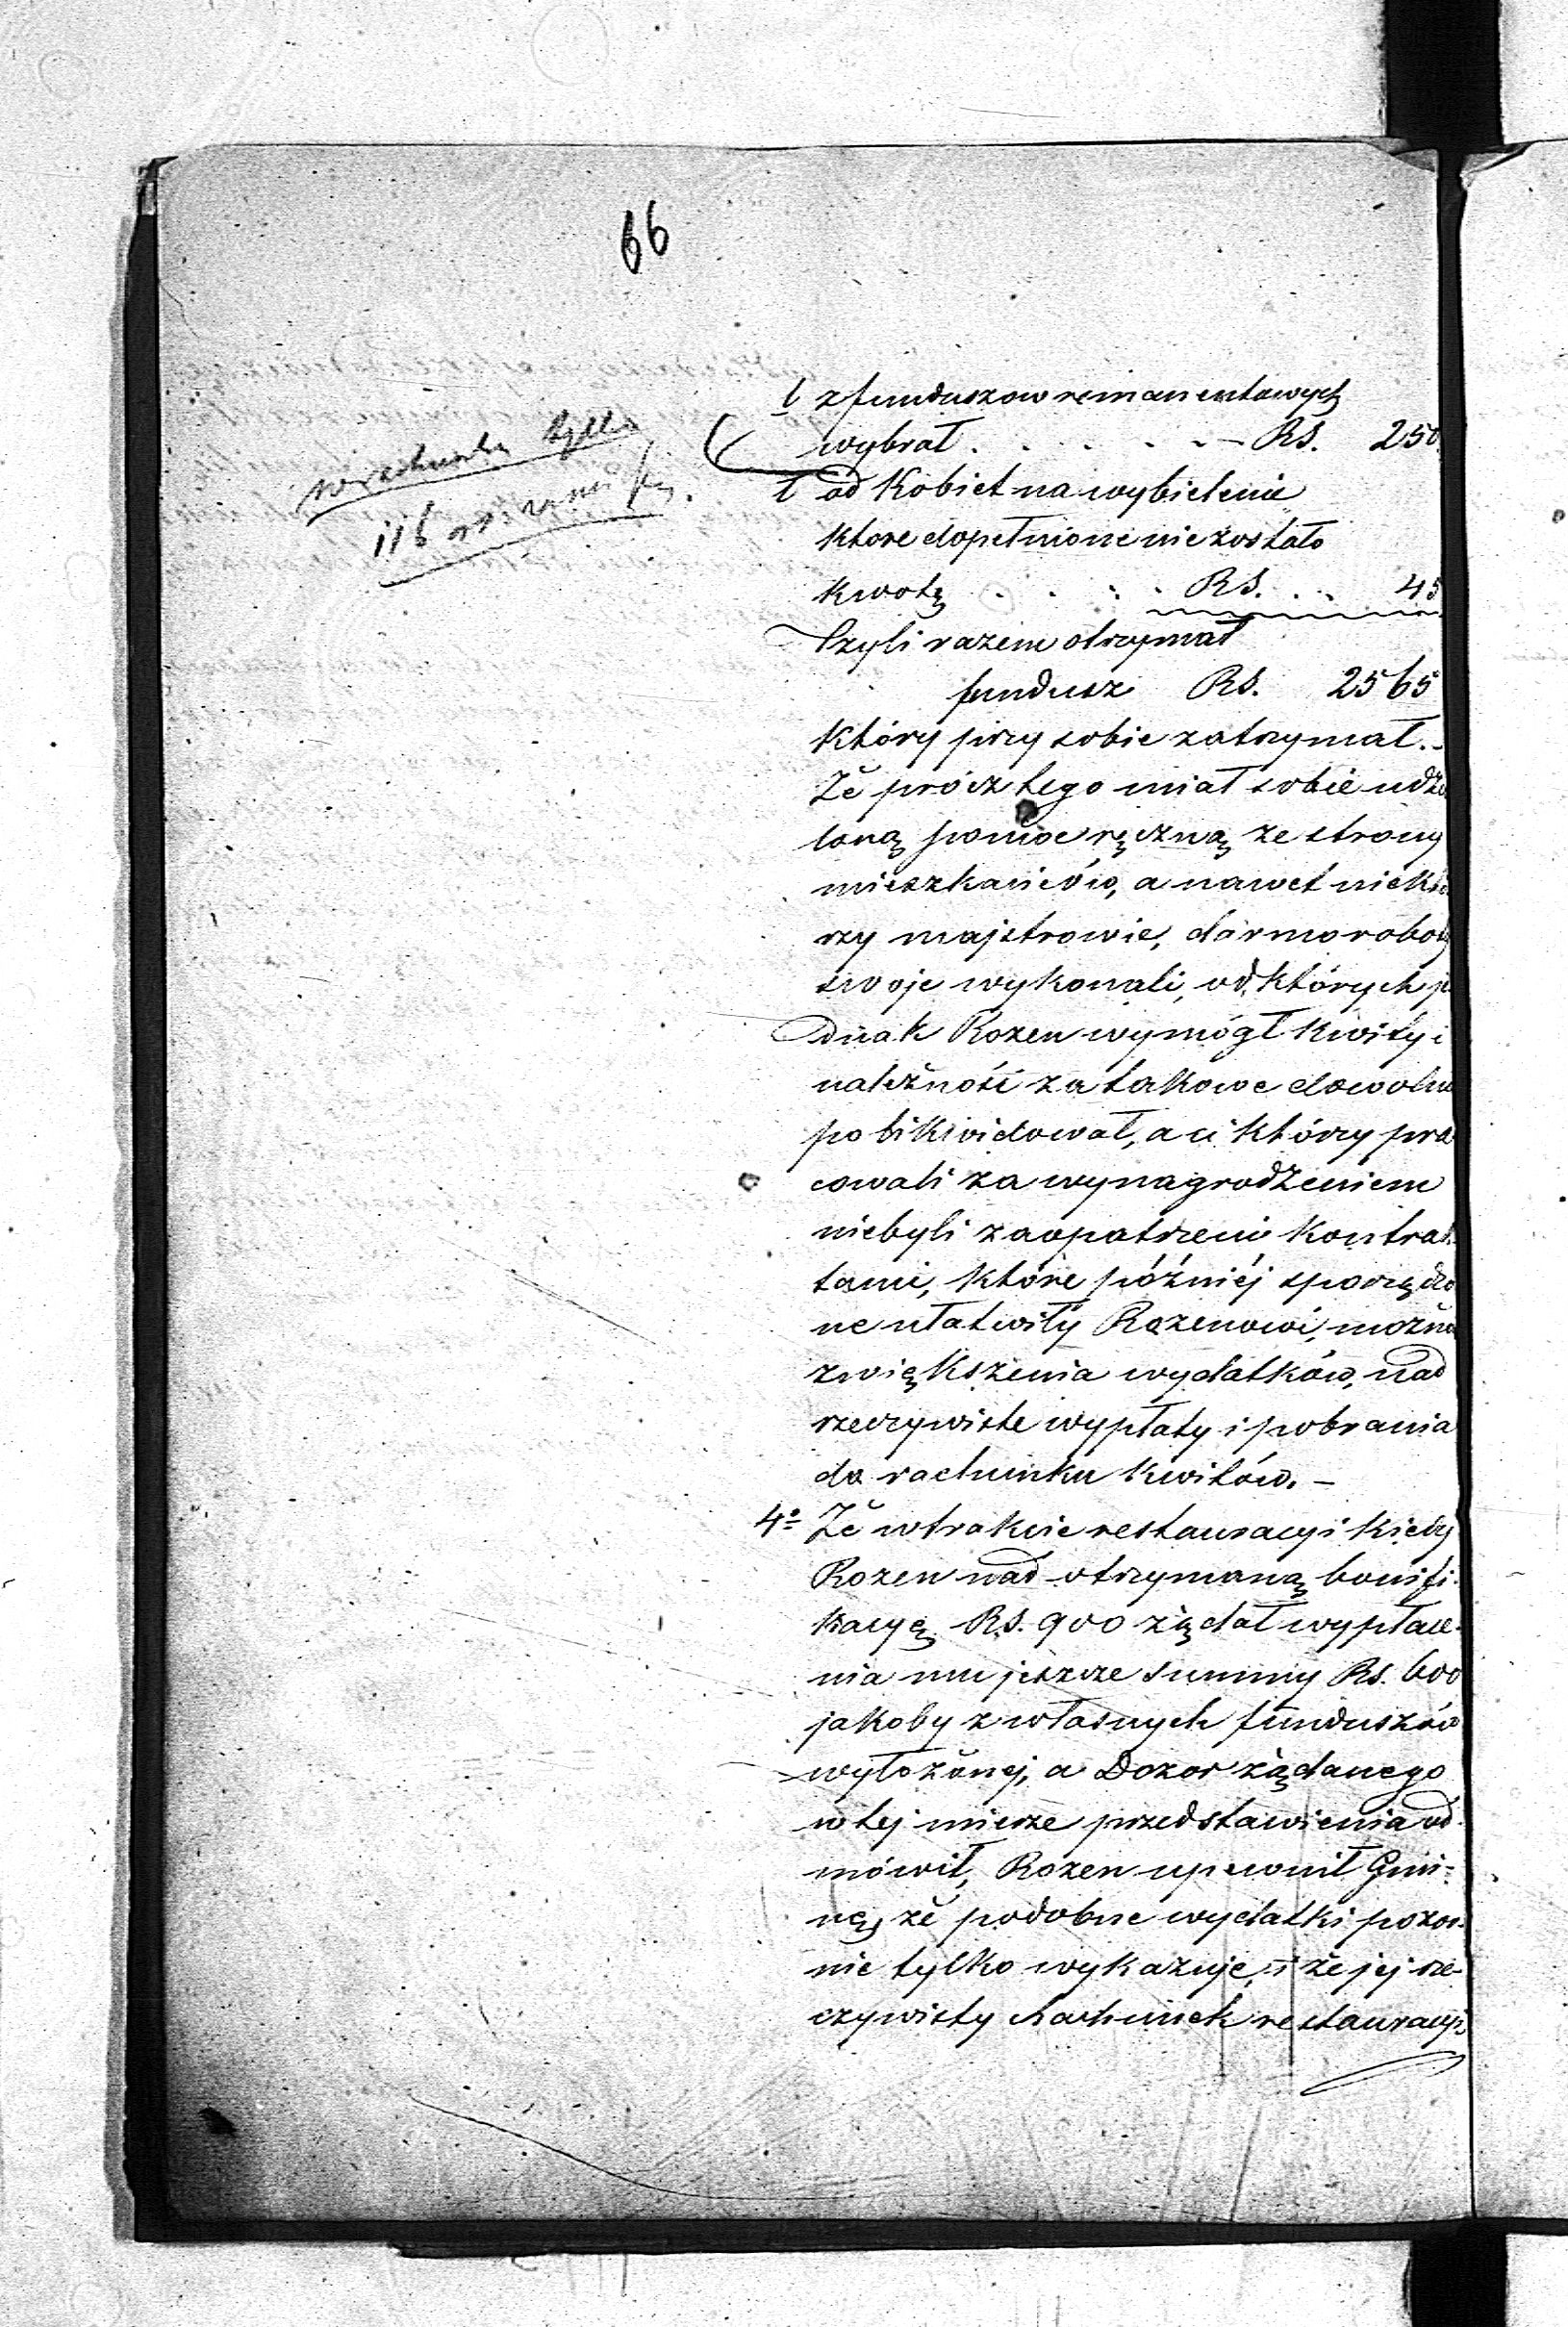 66
w rachunku tylko
116 rs.
b z funduszow remanentowych
wybrał . . . . . . — RS. 250.
c od Kobiet na wybielenie
ktore dopełnione nie zostało
kwotę . . . . RS. . . 45
Czyli razem otrzymał
fundusz RS. 2565
który przy sobie zatrzymał. -
Że prócz tego miał sobie udzie
loną pomoc ręczną ze strony
mieszkańców, a nawet niektó
rzy majstrowie, darmo roboty
swoje wykonali, od których je
dnak Rozen wymógł kwity i
należności za takowe dowolnie
polikwidował, a ci którzy pra
cowali za wynagrodzeniem
niebyli zaopatrzeni kontrak
tami, które później sporządzo
ne ułatwiły Rozenowi, można
zwiększenia wydatków, nad
rzeczywiste wypłaty i pobrania
do rachunku kwitów. —
4o Że w trakcie restauracyi kiedy
Rozen nad otrzymaną bonifi-
kacyę RS. 900 żądał wypłace-
nia mu jeszcze summy Rs. 600
jakoby z własnych funduszów
wyłożonej, a Dozor żądanego
w tej mierze przedstawienia od-
mówił, Rozen upewnił Gmi-
nę, że podobne wydatki pozor-
nie tylko wykazuje, i że jej rze-
czywisty Rachunek restauracyi